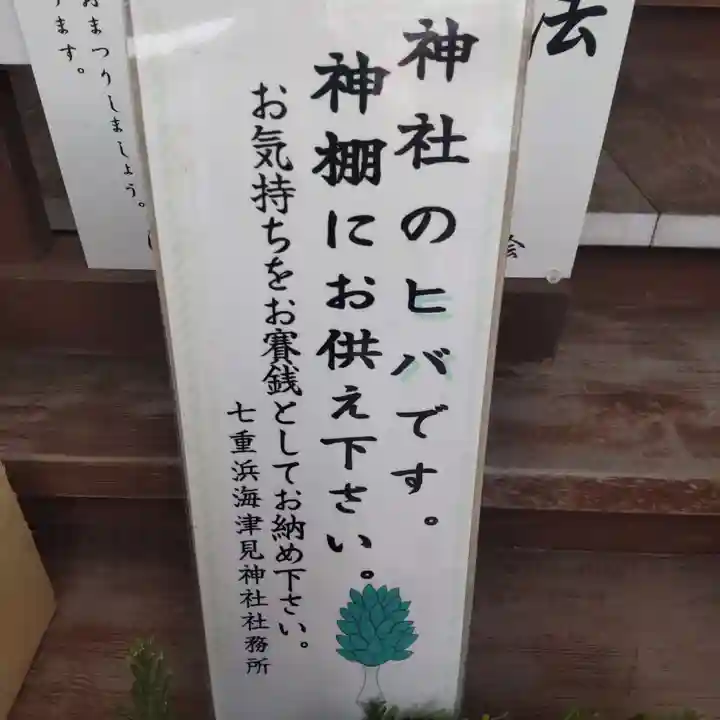 法
絵
神社のヒバです。
神棚にお供え下さい。
お気持ちをお賽銭としてお納め下さい。
七重浜海津見神社社務所
おまつりしましょう。
ます。